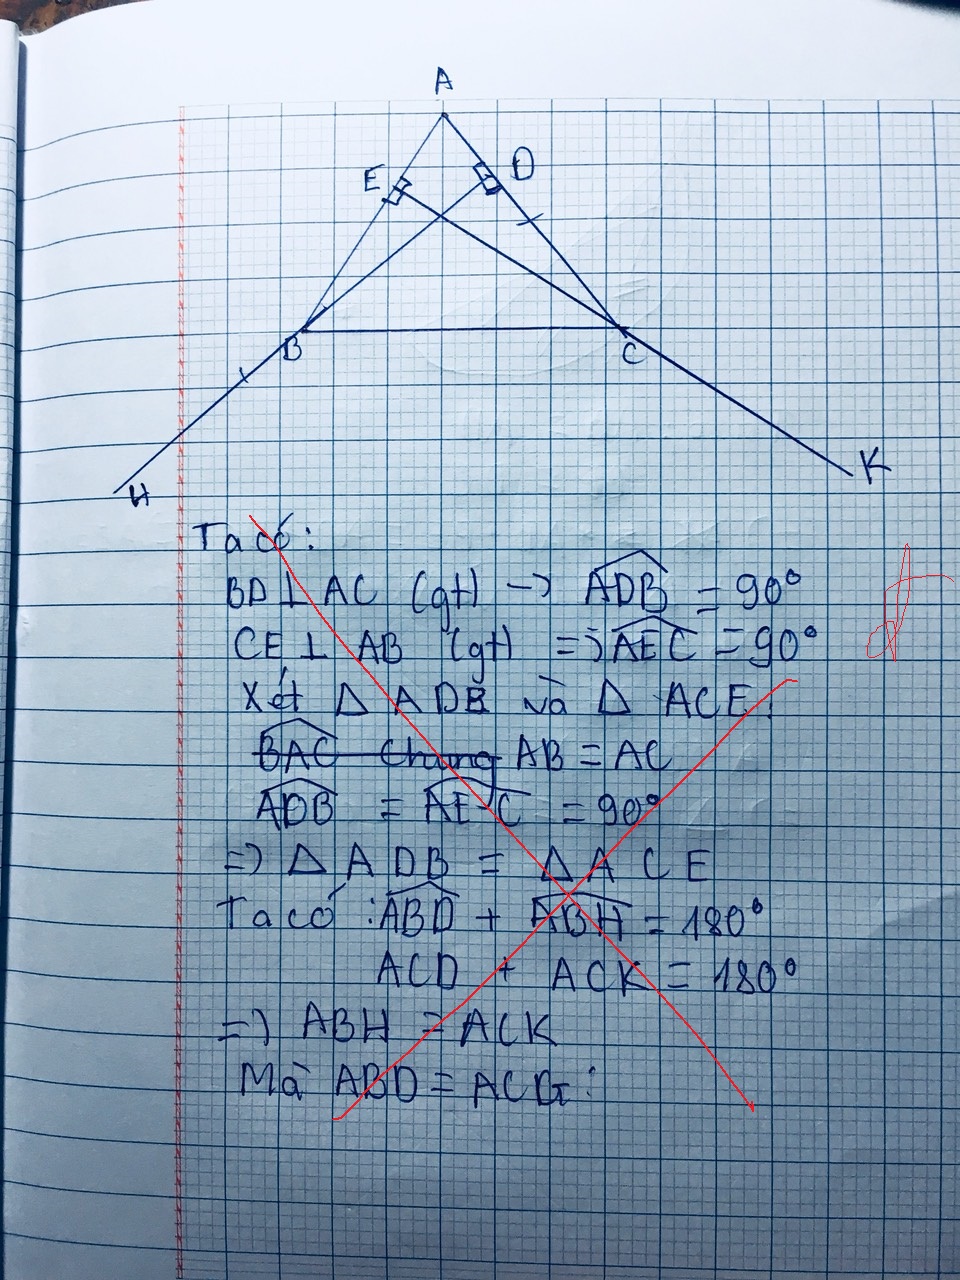 A
E
D
B
C
H
K
Ta có:
BD ⊥ AC (gt) → ADB = 90°
CE ⊥ AB (gt) => AEC = 90°
Xét Δ ADB và Δ ACE:
BAC chung AB = AC
ADB = AEC = 90°
=> Δ ADB = Δ ACE
Ta có: ABD + ABH = 180°
ACD + ACK = 180°
=> ABH = ACK
Mà ABD = ACG: